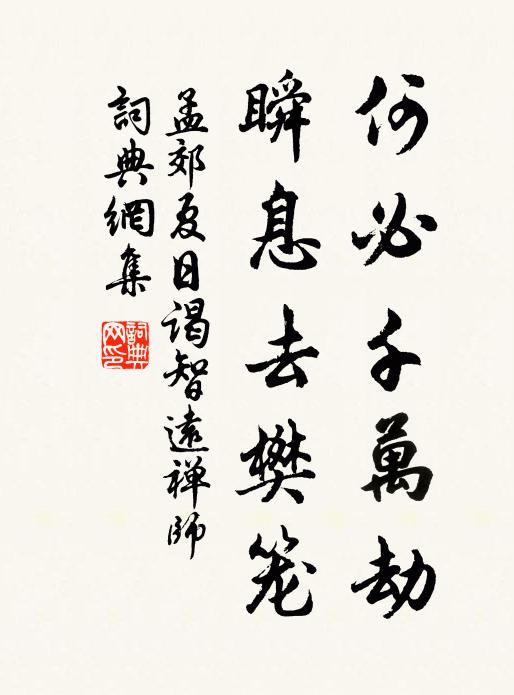 何必千萬劫
瞬息去樊笼
孟郊夏日谒智遠禅師
詞典網集
詞典網印